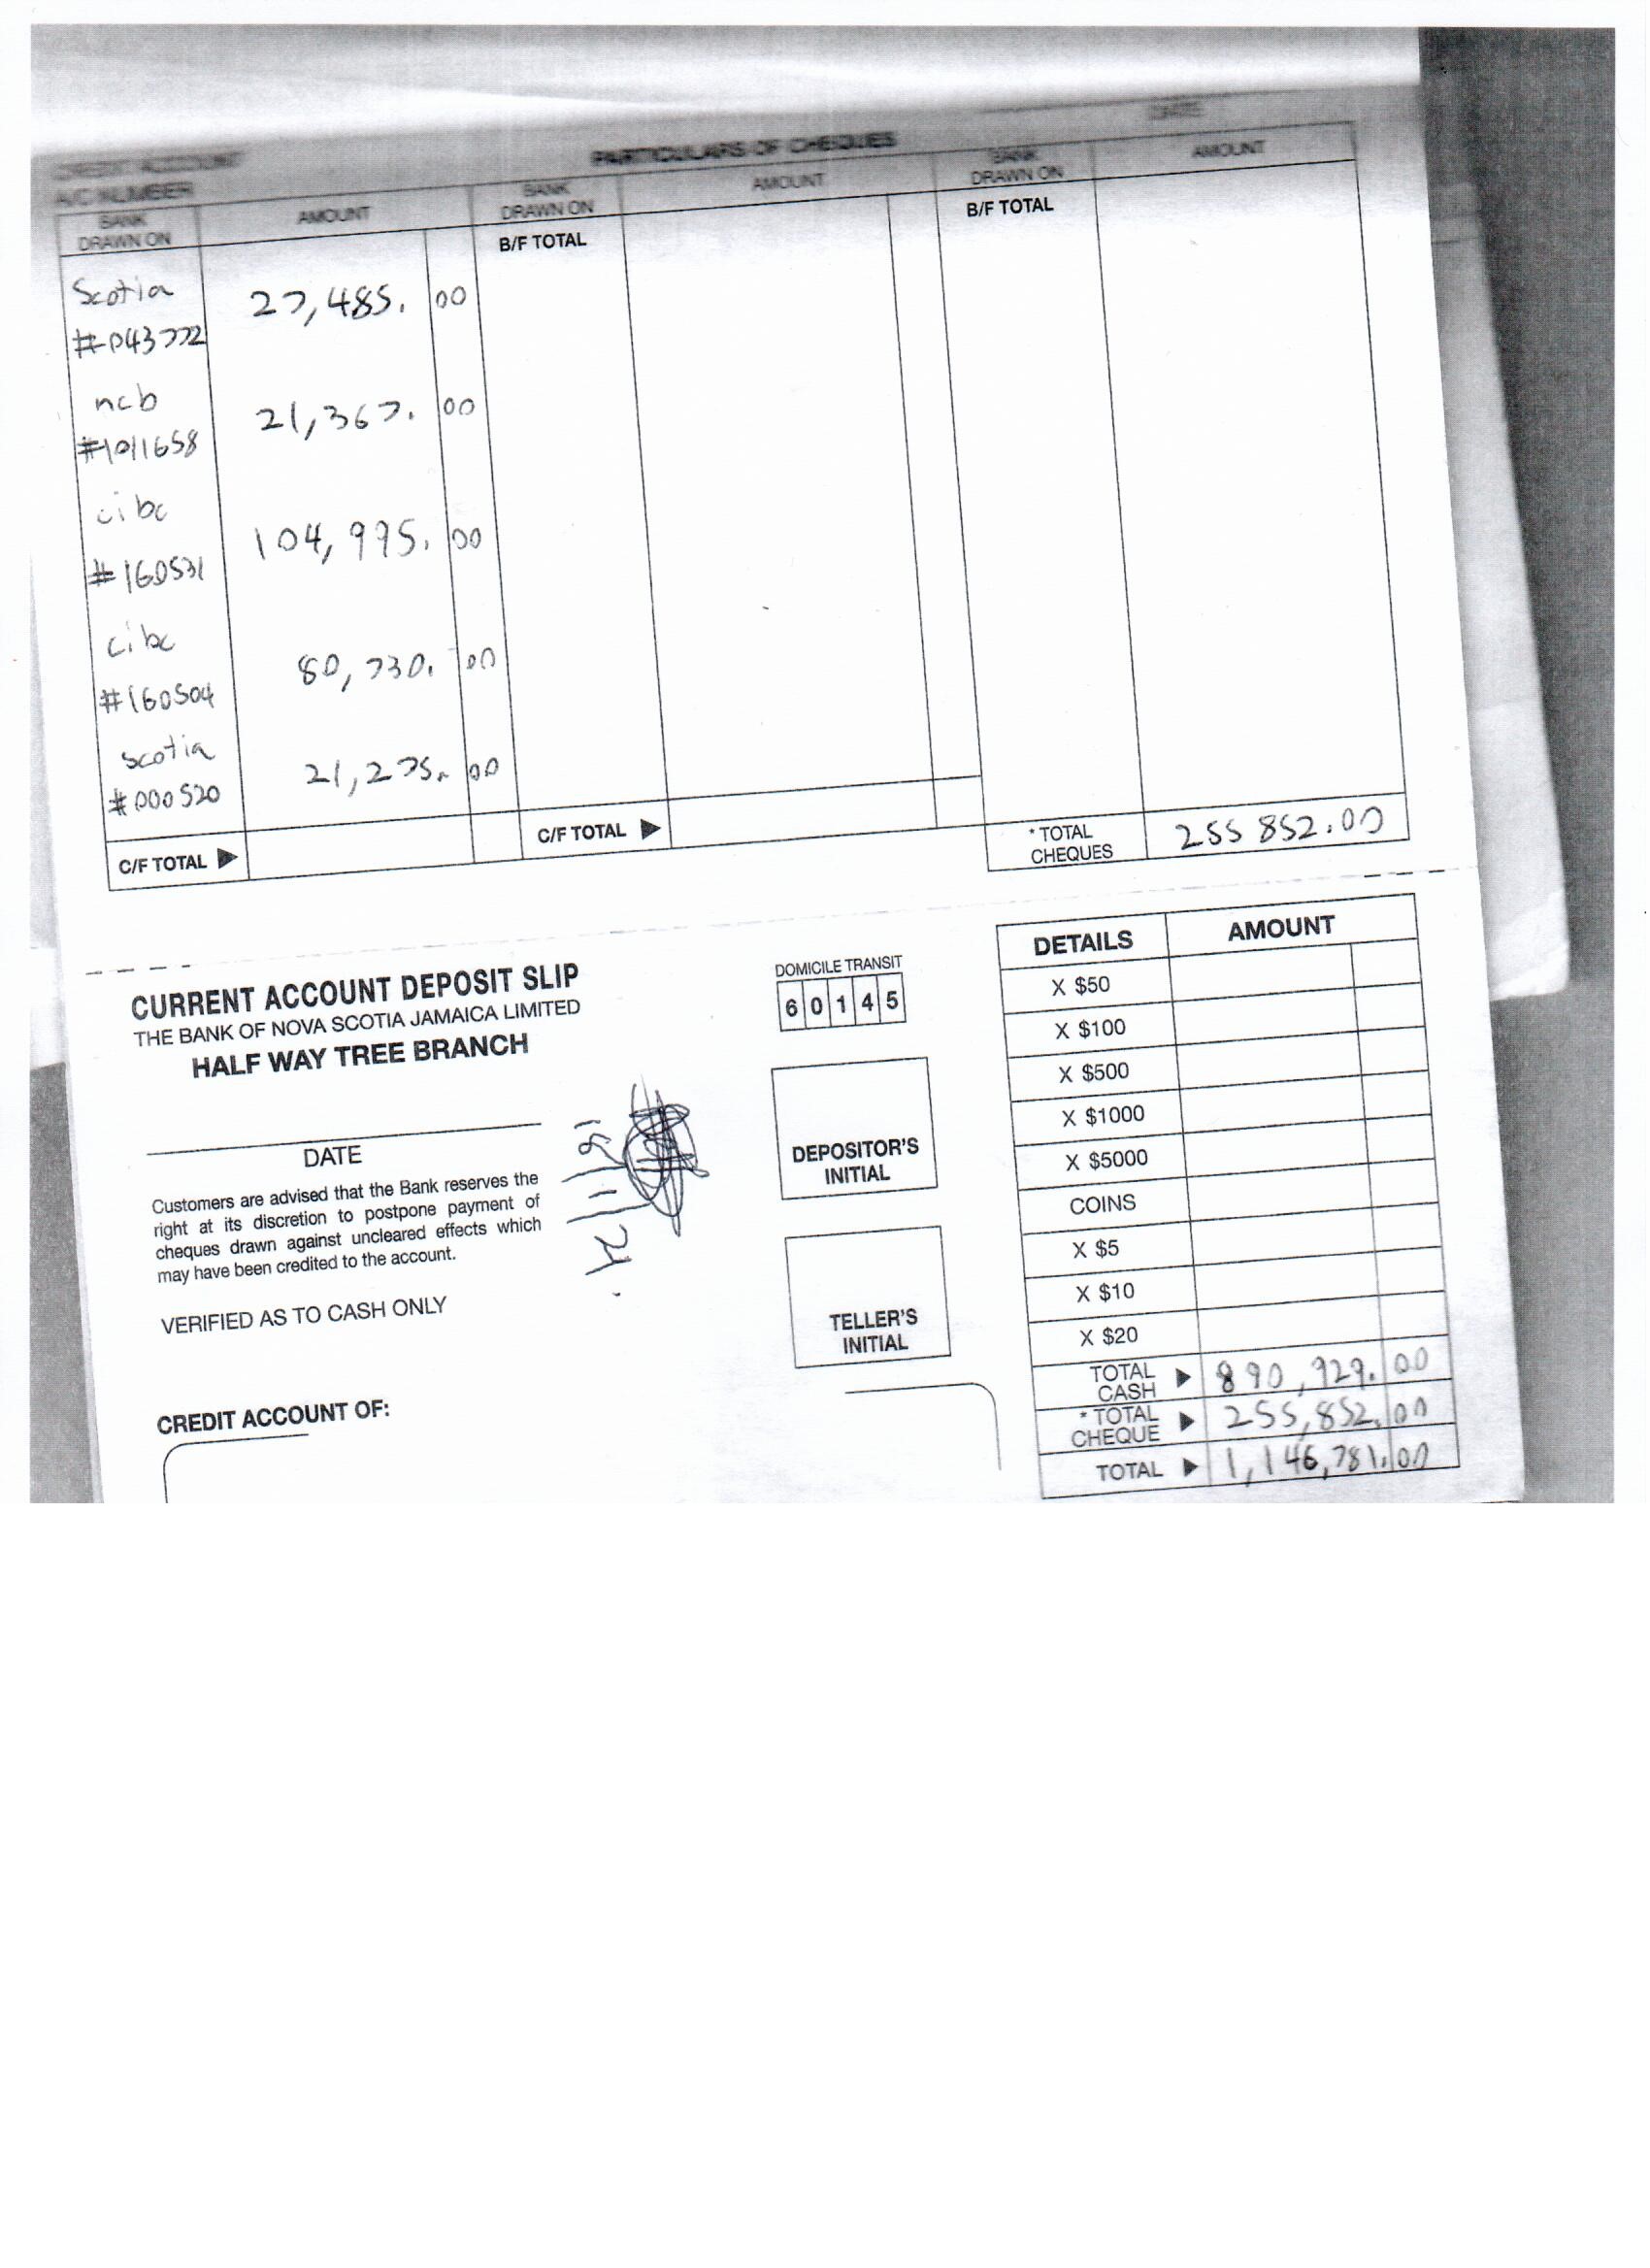 DATE
CREDIT ACCOUNT
PARTICULARS OF CHEQUES
A/C NUMBER
BANK DRAWN ON AMOUNT BANK DRAWN ON AMOUNT BANK DRAWN ON AMOUNT
B/F TOTAL B/F TOTAL
Scotia 27,485. 00
#043772
ncb 21,367. 00
#1011658
cibc 104,995. 00
#160531
cibc 80,730. 00
#160504
scotia 21,275. 00
#000520
C/F TOTAL C/F TOTAL * TOTAL CHEQUES 255 852.00
CURRENT ACCOUNT DEPOSIT SLIP
THE BANK OF NOVA SCOTIA JAMAICA LIMITED
HALF WAY TREE BRANCH
DATE
Customers are advised that the Bank reserves the
right at its discretion to postpone payment of
cheques drawn against uncleared effects which
may have been credited to the account.
VERIFIED AS TO CASH ONLY
CREDIT ACCOUNT OF:
DOMICILE TRANSIT
60145
DEPOSITOR'S
INITIAL
TELLER'S
INITIAL
DETAILS AMOUNT
X $50
X $100
X $500
X $1000
X $5000
COINS
X $5
X $10
X $20
TOTAL CASH 890,929. 00
* TOTAL CHEQUE 255,852. 00
TOTAL 1,146,781. 00